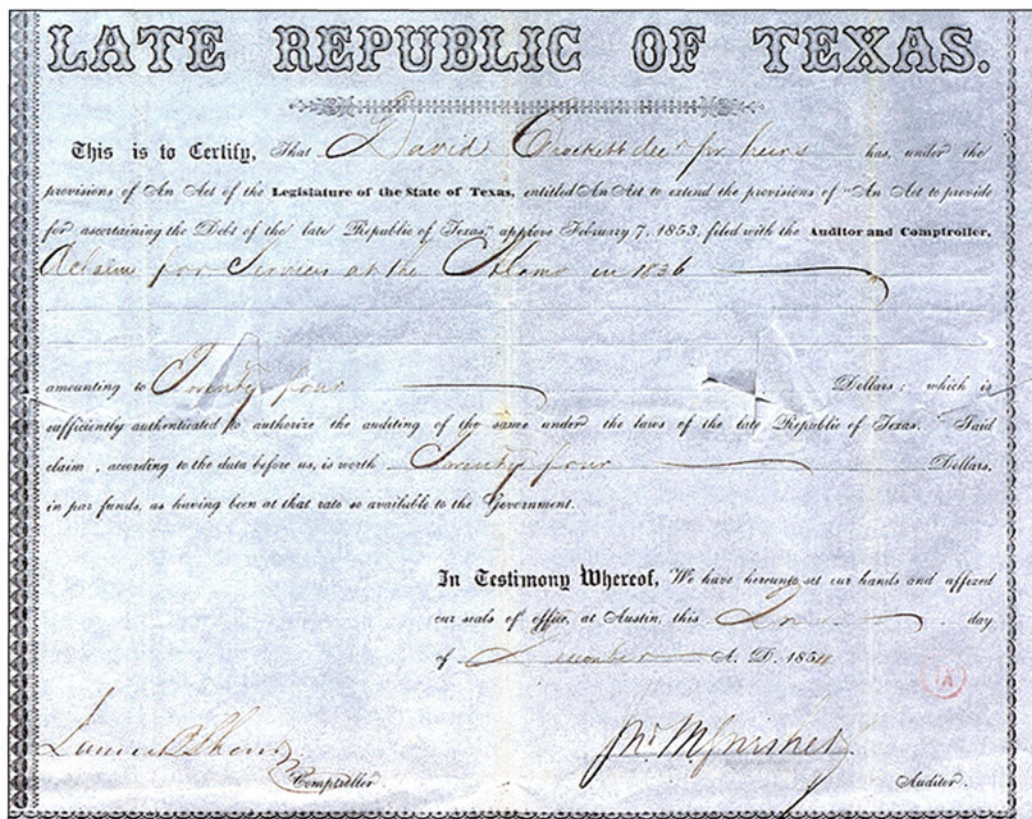 LATE REPUBLIC OF TEXAS.
This is to Certify, That David Crockett decd for heirs has, under the
provisions of An Act of the Legislature of the State of Texas, entitled An Act to extend the provisions of "An Act to provide
for ascertaining the Debt of the late Republic of Texas," approve February 7, 1853, filed with the Auditor and Comptroller,
A claim for Services at the Alamo in 1836
amounting to Twenty four Dollars; which is
sufficiently authenticated to authorize the auditing of the same under the laws of the late Republic of Texas. Said
claim, according to the data before us, is worth Twenty four Dollars,
in par funds, as having been at that rate so available to the Government.
In Testimony Whereof, We have hereunto set our hands and affixed
our seals of office, at Austin, this day
of December A. D. 1854
James B Shaw
Comptroller.
Auditor.